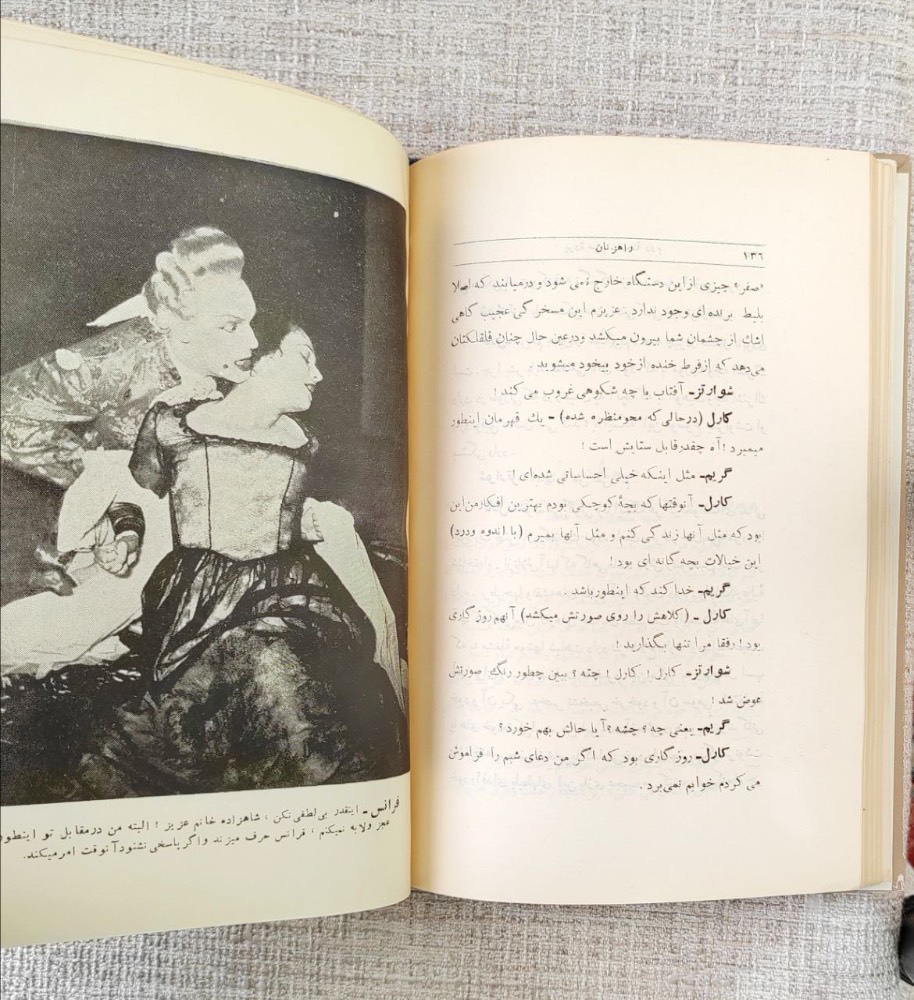 راهزنان
۱۳۶
«صفر» چیزی از این دستگاه خارج نمی شود و درمیابند که اصلا
بلیط برنده ای وجود ندارد . عزیزم این مسخر گی عجیب گاهی
اشك از چشمان شما بیرون میکشد ودرعین حال چنان قلقلکتان
می‌دهد که ازفرط خنده ازخود بیخود میشوید
شوارتز- آفتاب با چه شکوهی غروب می کند!
کارل (درحالی که محومنظره شده) - یك قهرمان اینطور
میمیرد ! آه چقدرقابل ستایش است !
گریم- مثل اینکه خیلی احساساتی شده‌ای!
کارل- آنوقتها که بچهٔ کوچکی بودم بهترین افکارمن این
بود که مثل آنها زند گی کنم و مثل آنها بمیرم (با اندوه ودرد)
این خیالات بچه گانه ای بود!
گریم- خدا کند که اینطورباشد .
کارل - (کلاهش را روی صورتش میکشد) آنهم روز گاری
بود! رفقا مرا تنها بگذارید !
شوارتز- کارل ! کارل ! چته ؟ ببین چطور رنگ صورتش
عوض شد !
گریم- یعنی چه ؟ چشه ؟ آیا حالش بهم خورد ؟
کارل- روز گاری بود که اگر من دعای شبم را فراموش
می کردم خوابم نمی‌برد .
فرانس - اینقدر بی‌لطفی نکن ، شاهزاده خانم عزیز ! البته من درمقابل تو اینطور
عجز ولابه نمیکنم ، فرانس حرف میزند واگر پاسخی نشنود آنوقت امر میکند.